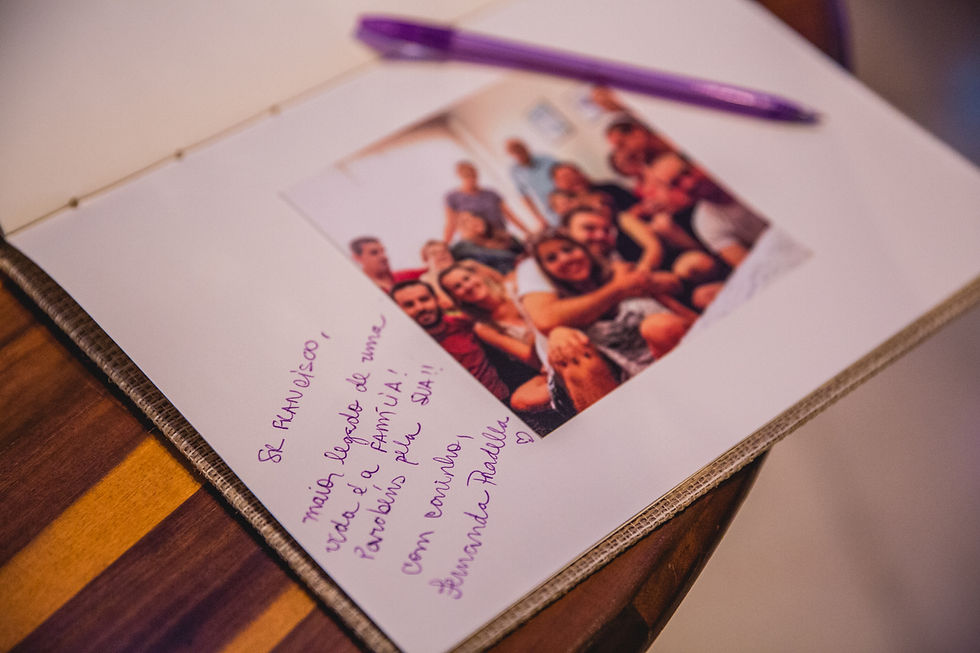 SR FRANCISCO,
maior legado de uma
vida é a FAMÍLIA!
Parabéns pela SUA!!
com carinho,
Fernanda Pradella ♡